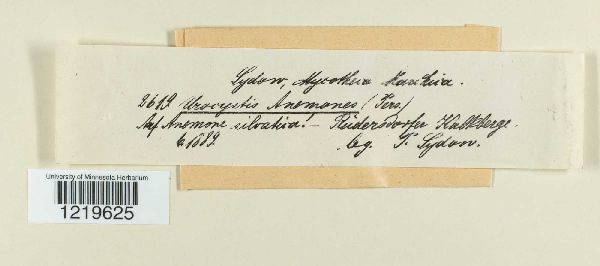 Sydow, Mycotheca Marchica.
2619 Urocystis Anemones (Pers.)
Auf Anemone silvatica! — Rüdersdorfer Kalkberge.
6 1889 leg. P. Sydow.
University of Minnesota Herbarium
1219625